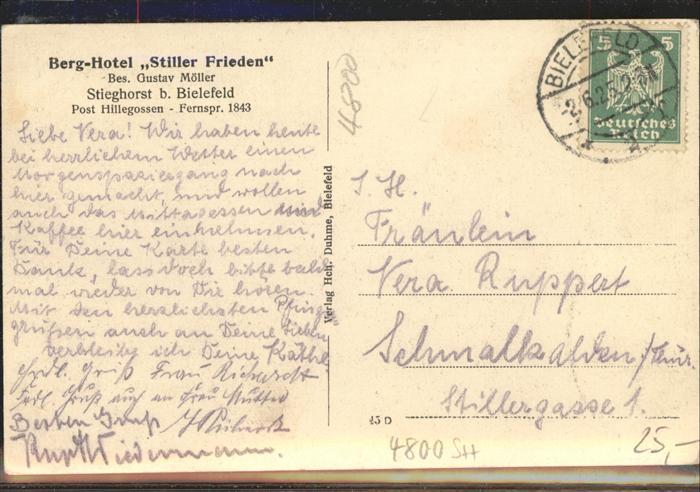 Berg-Hotel „Stiller Frieden“
Bes. Gustav Möller
Stieghorst b. Bielefeld
Post Hillegossen - Fernspr. 1843
Liebe Vera! Wir haben heute
bei herrlichem Wetter einen
Morgenspaziergang nach
hier gemacht, und wollen
auch das Mittagessen und
Kaffee hier einnehmen.
Für Deine Karte besten
Dank, lass doch bitte bald
mal wieder von Dir hören.
Mit den herzlichsten Pfingst
grüßen auch an Deine Lieben
verbleibe ich Deine Käthe
Frau
Gruß auch an Frau Mutter
Besten Gruß
Wiedermann.
Verlag Hch. Duhme, Bielefeld
4800
BIELEFELD
5 5
Deutsches
Reich
Fräulein
Vera Ruppert
Schmalkalden/Thür.
Stillergasse 1.
45 D
4800
25,-